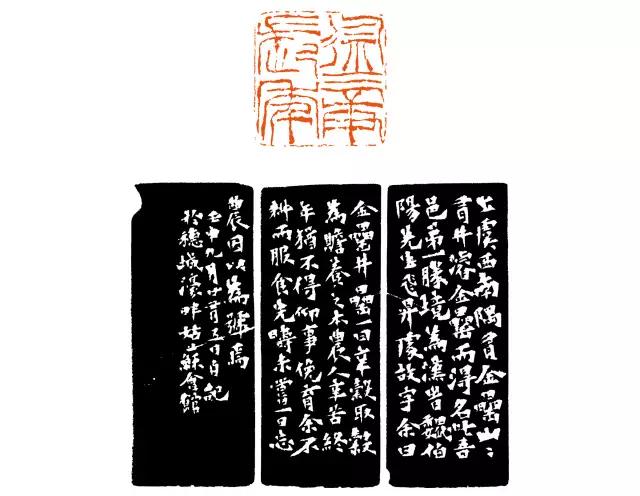 上虞西南隅有金罍山〻
有井濬金罍而得名此吾
邑第一勝境為漢晉魏伯
陽先生飛昇處故字余曰
金罍井罍一曰辛穀取穀
為贍養之本農人辛苦終
年猶不得仰事俛育余不
耕而服食先疇未嘗一日忘
農因以為號焉
壬申九月廿有五日自記
於穗城濠畔姑蘇會館